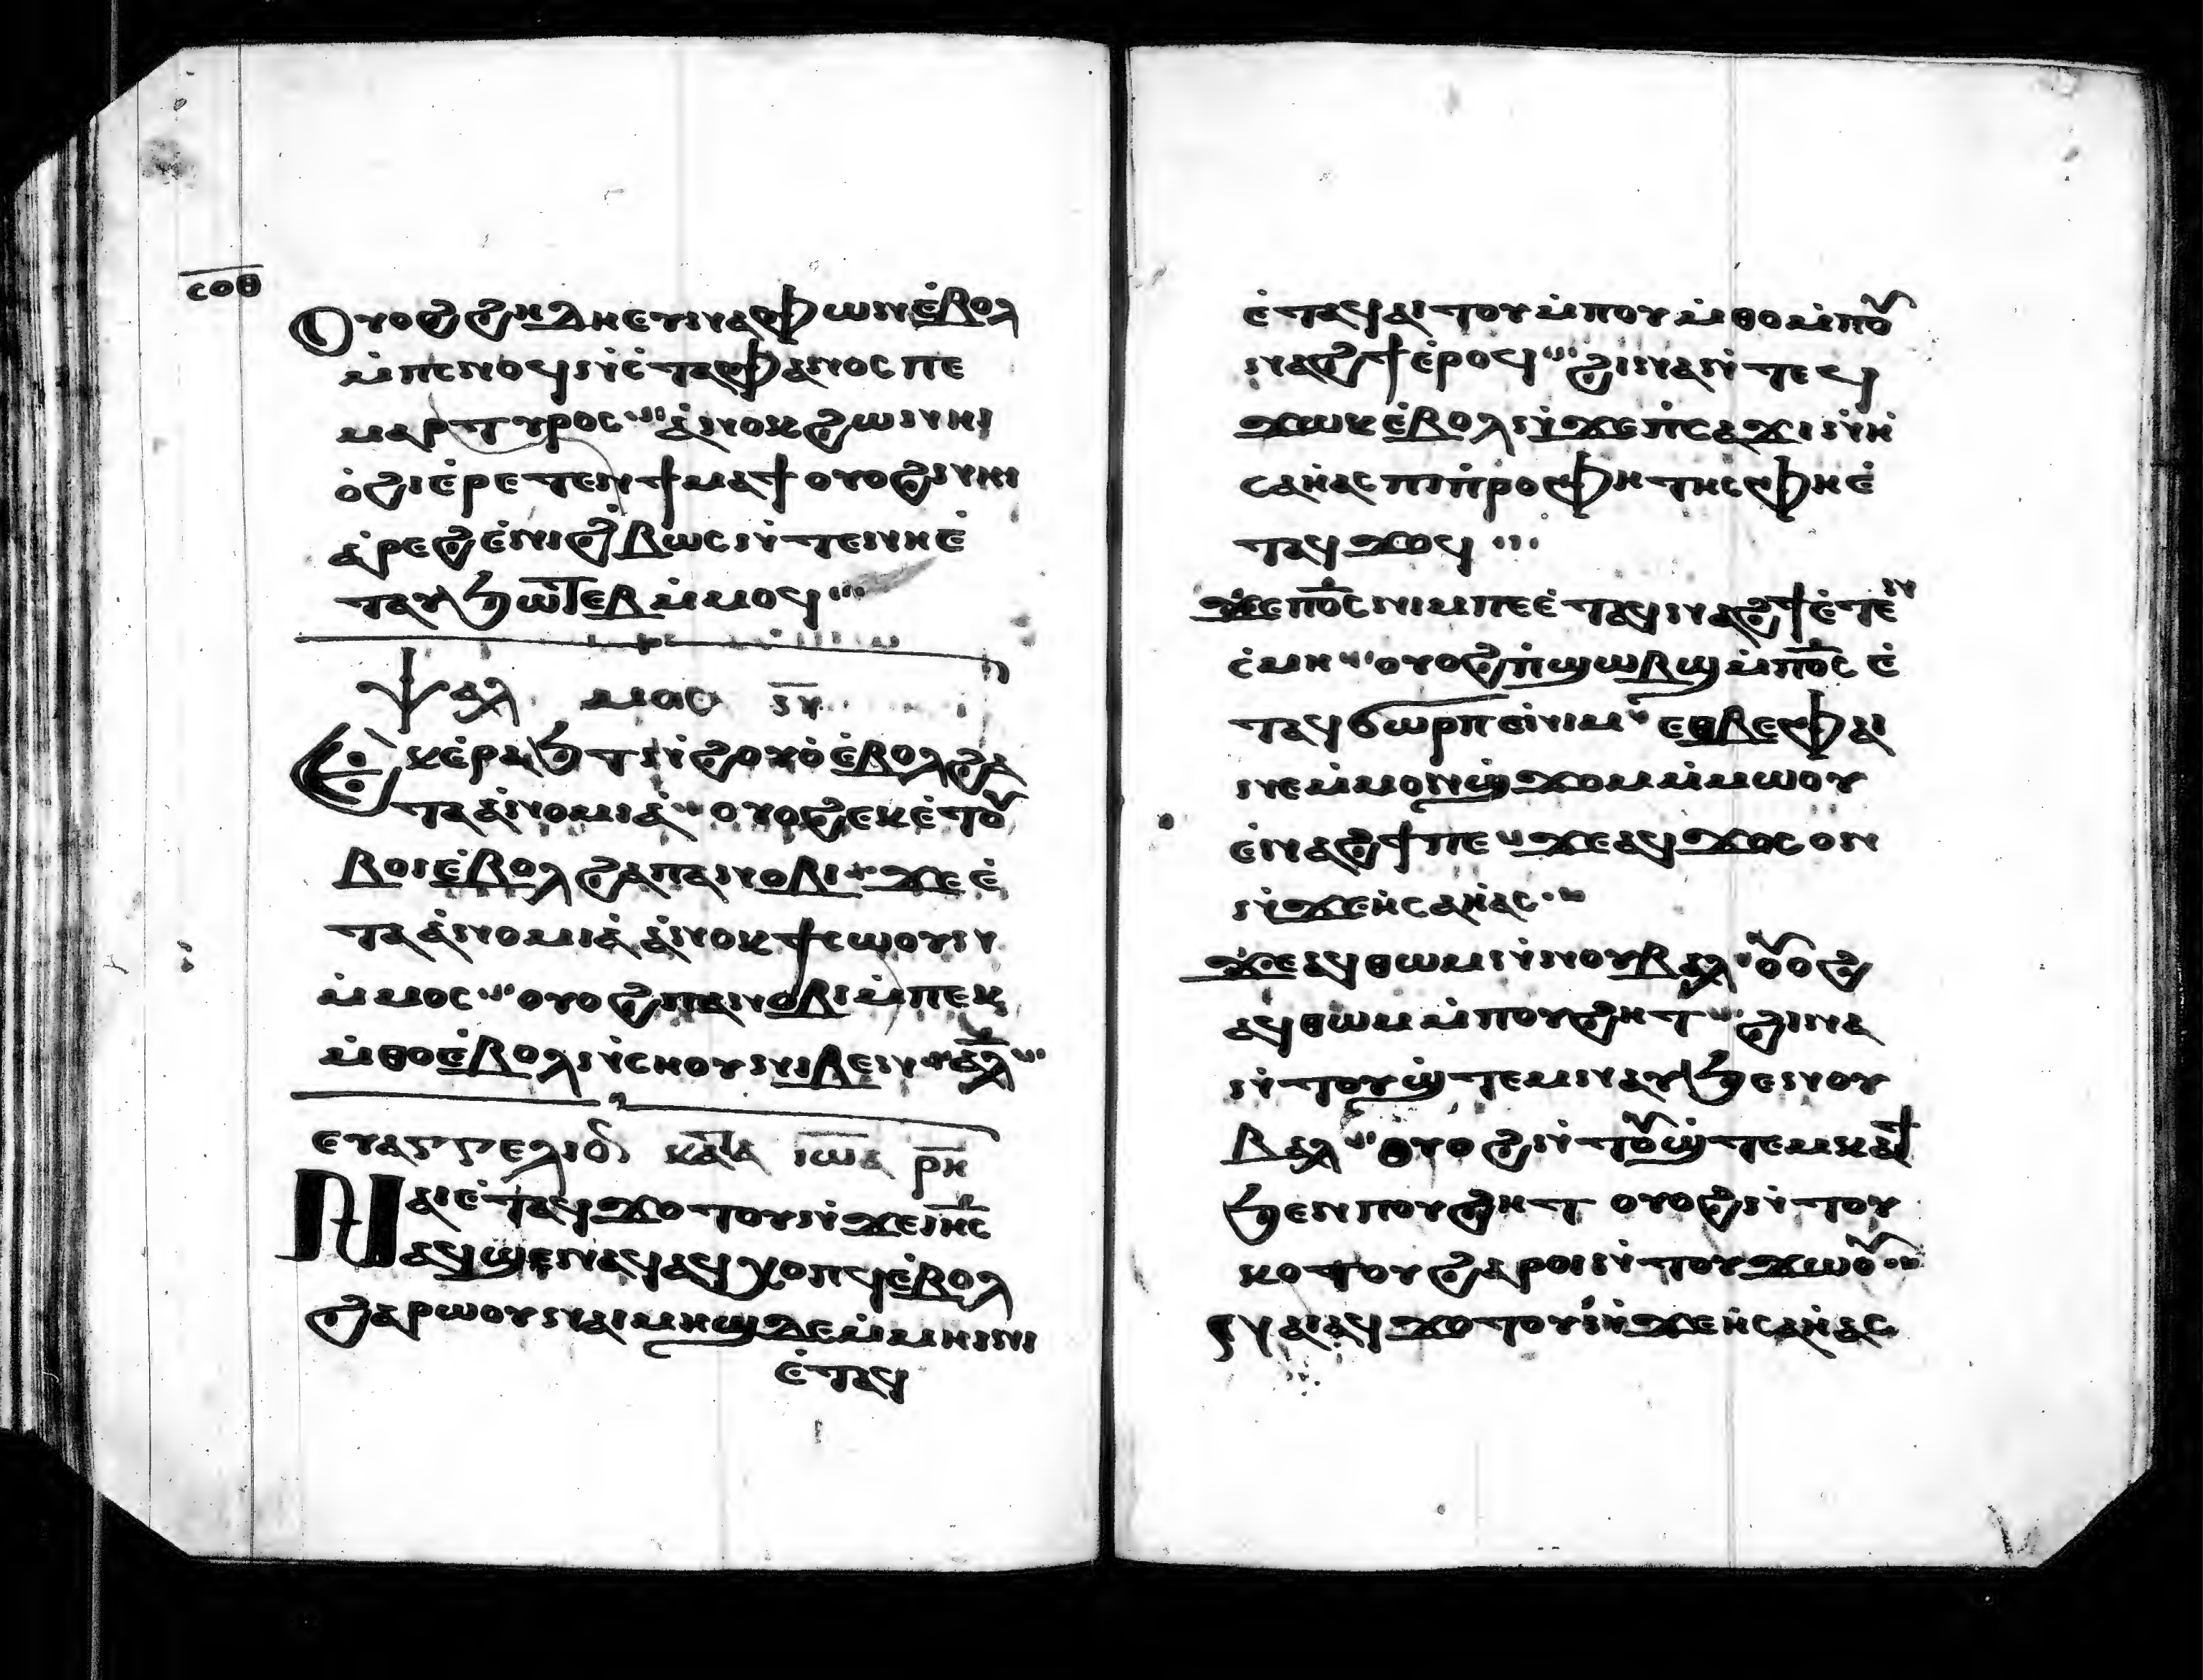 ⲥⲟⲑ
Ⲟⲩⲟϩ ϩⲏⲇⲏ ⲉⲩⲛⲁⲫⲱⲛ ⲉ̀ⲃⲟⲗ
ⲙ̀ⲡⲥⲛⲟϥ ⲛ̀ⲥ̀ⲧⲉⲫⲁⲛⲟⲥ ⲡⲉ
ⲙⲁⲣⲧⲩⲣⲟⲥ ⲁ̀ⲛⲟⲕ ϩⲱ ⲛⲁⲓ
ⲟ̀ϩⲓ ⲉ̀ⲣⲉⲧⲉⲛ ϯⲙⲁϯ ⲟⲩⲟϩ ⲛⲁⲓ
ⲁ̀ⲣⲉϩ ⲉ̀ⲛⲓϩ̀ⲃⲱⲥ ⲛ̀ⲧⲉ ⲛⲏⲉ̀
ⲧⲁⲩϧⲱⲧⲉⲃ ⲙ̀ⲙⲟϥ
ⲯⲁⲗⲙⲟⲥ ⲛ̅
Ⲉⲕⲉ̀ⲣⲁϧⲧ ⲛ̀ϩⲟⲩⲟ̀ ⲉ̀ⲃⲟⲗ ϩⲁ
ⲧⲁⲁ̀ⲛⲟⲙⲓⲁ̀ ⲟⲩⲟϩ ⲉⲕⲉ̀ⲧⲟⲩ
ⲃⲟⲓ ⲉ̀ⲃⲟⲗ ϩⲁ ⲡⲁⲛⲟⲃⲓ ϫⲉ ⲉ̀
ⲧⲁⲁ̀ⲛⲟⲙⲓⲁ̀ ⲁ̀ⲛⲟⲕ ϯⲥⲱⲟⲩⲛ
ⲙ̀ⲙⲟⲥ ⲟⲩⲟϩ ⲡⲁⲛⲟⲃⲓ ⲙ̀ⲡⲉⲕ
ⲙ̀ⲑⲟ ⲉ̀ⲃⲟⲗ ⲛ̀ⲥⲏⲟⲩ ⲛⲓⲃⲉⲛ ⲁⲗ
ⲉⲩⲁⲅⲅⲉⲗⲓⲟⲛ ⲕⲁⲧⲁ ⲓⲱⲁ ⲣ̅ⲏ̅
Ⲛⲁⲓ ⲉ̀ⲧⲁϥϫⲟⲧⲟⲩ ⲛ̀ϫⲉ ⲓⲏ̅ⲥ̅
ⲁϥϣⲉⲛⲁϥ ⲁϥⲭⲟⲡϥ ⲉ̀ⲃⲟⲗ
ϩⲁⲣⲱⲟⲩ ⲛⲁⲓⲙⲏϣ ⲇⲉ ⲙ̀ⲙⲏⲓⲛⲓ
ⲉ̀ⲧⲁϥ
ⲉ̀ⲧⲁϥⲁⲓⲧⲟⲩ ⲙ̀ⲡⲟⲩⲙ̀ⲑⲟ ⲙ̀ⲡⲟⲩ
ⲛⲁϩϯ ⲉ̀ⲣⲟϥ ϩⲓⲛⲁ ⲛ̀ⲧⲉϥ
ϫⲱⲕ ⲉ̀ⲃⲟⲗ ⲛ̀ϫⲉ ⲡ̀ⲥⲁϫⲓ ⲛ̀ⲏ̀
ⲥⲁⲏ̀ⲁⲥ ⲡⲓⲡ̀ⲣⲟⲫⲏⲧⲏⲥ ⲫⲏⲉ̀
ⲧⲁϥϫⲟϥ
ϫⲉ ⲡⲟ̅ⲥ̅ ⲛⲓⲙ ⲡⲉ ⲉ̀ⲧⲁϥⲛⲁϩϯ ⲉ̀ⲧⲉⲛ
ⲥ̀ⲙⲏ ⲟⲩⲟϩ ⲡ̀ϣⲱⲃϣ ⲙ̀ⲡⲟ̅ⲥ̅ ⲉ̀
ⲧⲁϥϭⲱⲣⲡ ⲉ̀ⲛⲓⲙ ⲉⲑⲃⲉ ⲫⲁⲓ
ⲛⲉ ⲙ̀ⲙⲟⲛϣ̀ϫⲟⲙ ⲙ̀ⲙⲱⲟⲩ
ⲉ̀ⲛⲁϩϯ ⲡⲉ ϫⲉ ⲁϥϫⲟⲥ ⲟⲛ
ⲛ̀ϫⲉ ⲏ̀ⲥⲁⲏ̀ⲁⲥ
ϫⲉ ⲁϥⲑⲱⲙ ⲛ̀ⲛⲟⲩⲃⲁⲗ ⲟⲩⲟϩ
ⲁϥⲑⲱⲙ ⲙ̀ⲡⲟⲩϩⲏⲧ ϩⲓⲛⲁ
ⲛ̀ⲧⲟⲩϣ̀ⲧⲉⲙⲛⲁⲩ ϧⲉⲛ ⲛⲟⲩ
ⲃⲁⲗ ⲟⲩⲟϩ ⲛ̀ⲧⲟⲩϣ̀ⲧⲉⲙⲕⲁϯ
ϧⲉⲛ ⲡⲟⲩϩⲏⲧ ⲟⲩⲟϩ ⲛ̀ⲧⲟⲩ
ⲕⲟⲧⲟⲩ ϩⲁⲣⲟⲓ ⲛ̀ⲧⲟⲩϫⲱⲟⲩ
ⲛⲁⲓ ⲁϥϫⲟⲧⲟⲩ ⲛ̀ϫⲉ ⲏ̀ⲥⲁⲏ̀ⲁⲥ